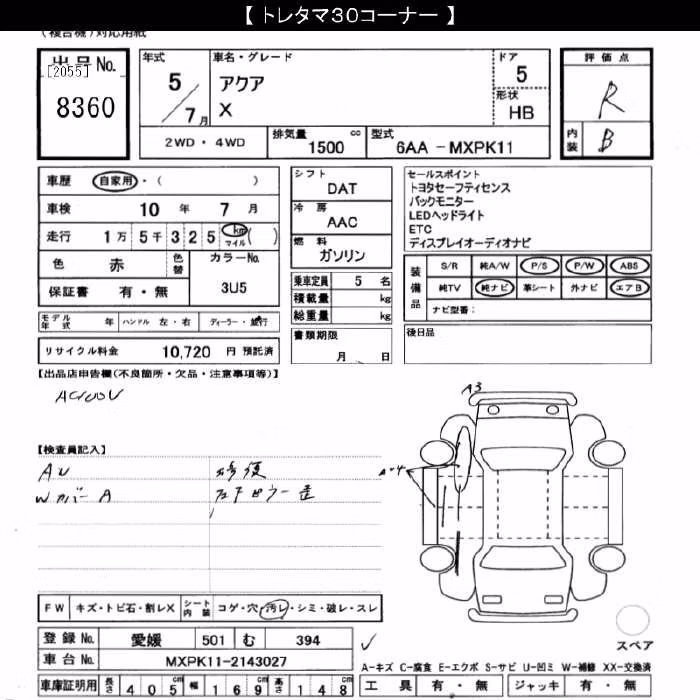 【 トレタマ30コーナー 】
(複合機)対応用紙
出品No.
[2055]
8360
年式
5/7月
車名・グレード
アクア
X
ドア
5
形状
HB
評価点
R
内装
B
2WD・4WD
排気量 1500 cc
型式 6AA - MXPK11
車歴 自家用・( )
車検 10 年 7 月
走行 1万 5千 3 2 5 km マイル ( )
色 赤 色替
カラーNo. 3U5
保証書 有・無
モデル年式 年 ハンドル 左・右 ディーラー・並行
リサイクル料金 10,720 円 預託済
シフト
DAT
冷房
AAC
燃料
ガソリン
乗車定員 5 名
積載量 kg
総重量 kg
書類期限
月 日
セールスポイント
トヨタセーフティセンス
バックモニター
LEDヘッドライト
ETC
ディスプレイオーディオナビ
装備品
S/R 純A/W P/S P/W ABS
純TV 純ナビ 革シート 外ナビ エアB
ナビ型番:
後日品
【出品店申告欄(不良箇所・欠品・注意事項等)】
AC100V
A3
【検査員記入】
AU
Wカバー A
修復
歪
FW キズ・トビ石・割レX
シート内装 コゲ・穴・汚レ・シミ・破レ・スレ
登録No. 愛媛 501 む 394
車台No. MXPK11-2143027
車庫証明用 長さ 405 cm 幅 169 cm 高さ 148 cm
スペア
A-キズ C-腐食 E-エクボ S-サビ U-凹ミ W-補修 XX-交換済
工具 有・無 ジャッキ 有・無